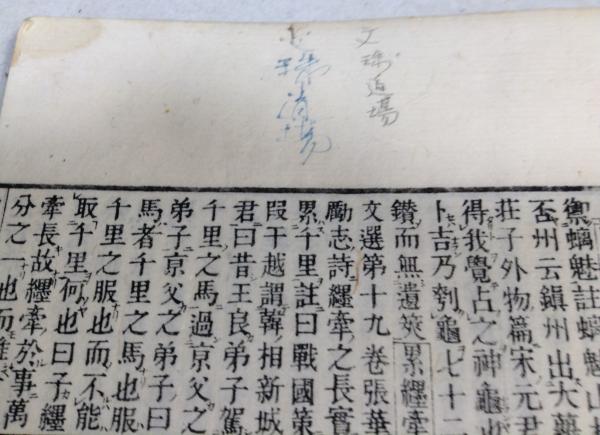 文珠道場
禦螭魅註螭魅山
盃州云鎭州出大藥
莊子外物篇宋元君
得我覺占之神龜也
卜吉乃刳龜七十二
鑽而無遺筴累纆牽
文選第十九卷張華
勵志詩纆牽之長實
累千里註曰戰國策
段干越謂韓相新城
君曰昔王良弟子駕
千里之馬過京父之
弟子京父之弟子曰
馬者千里之馬也服
千里之服也而不能
取千里何也曰子纆
牽長故纆牽於事萬
分之一也而難